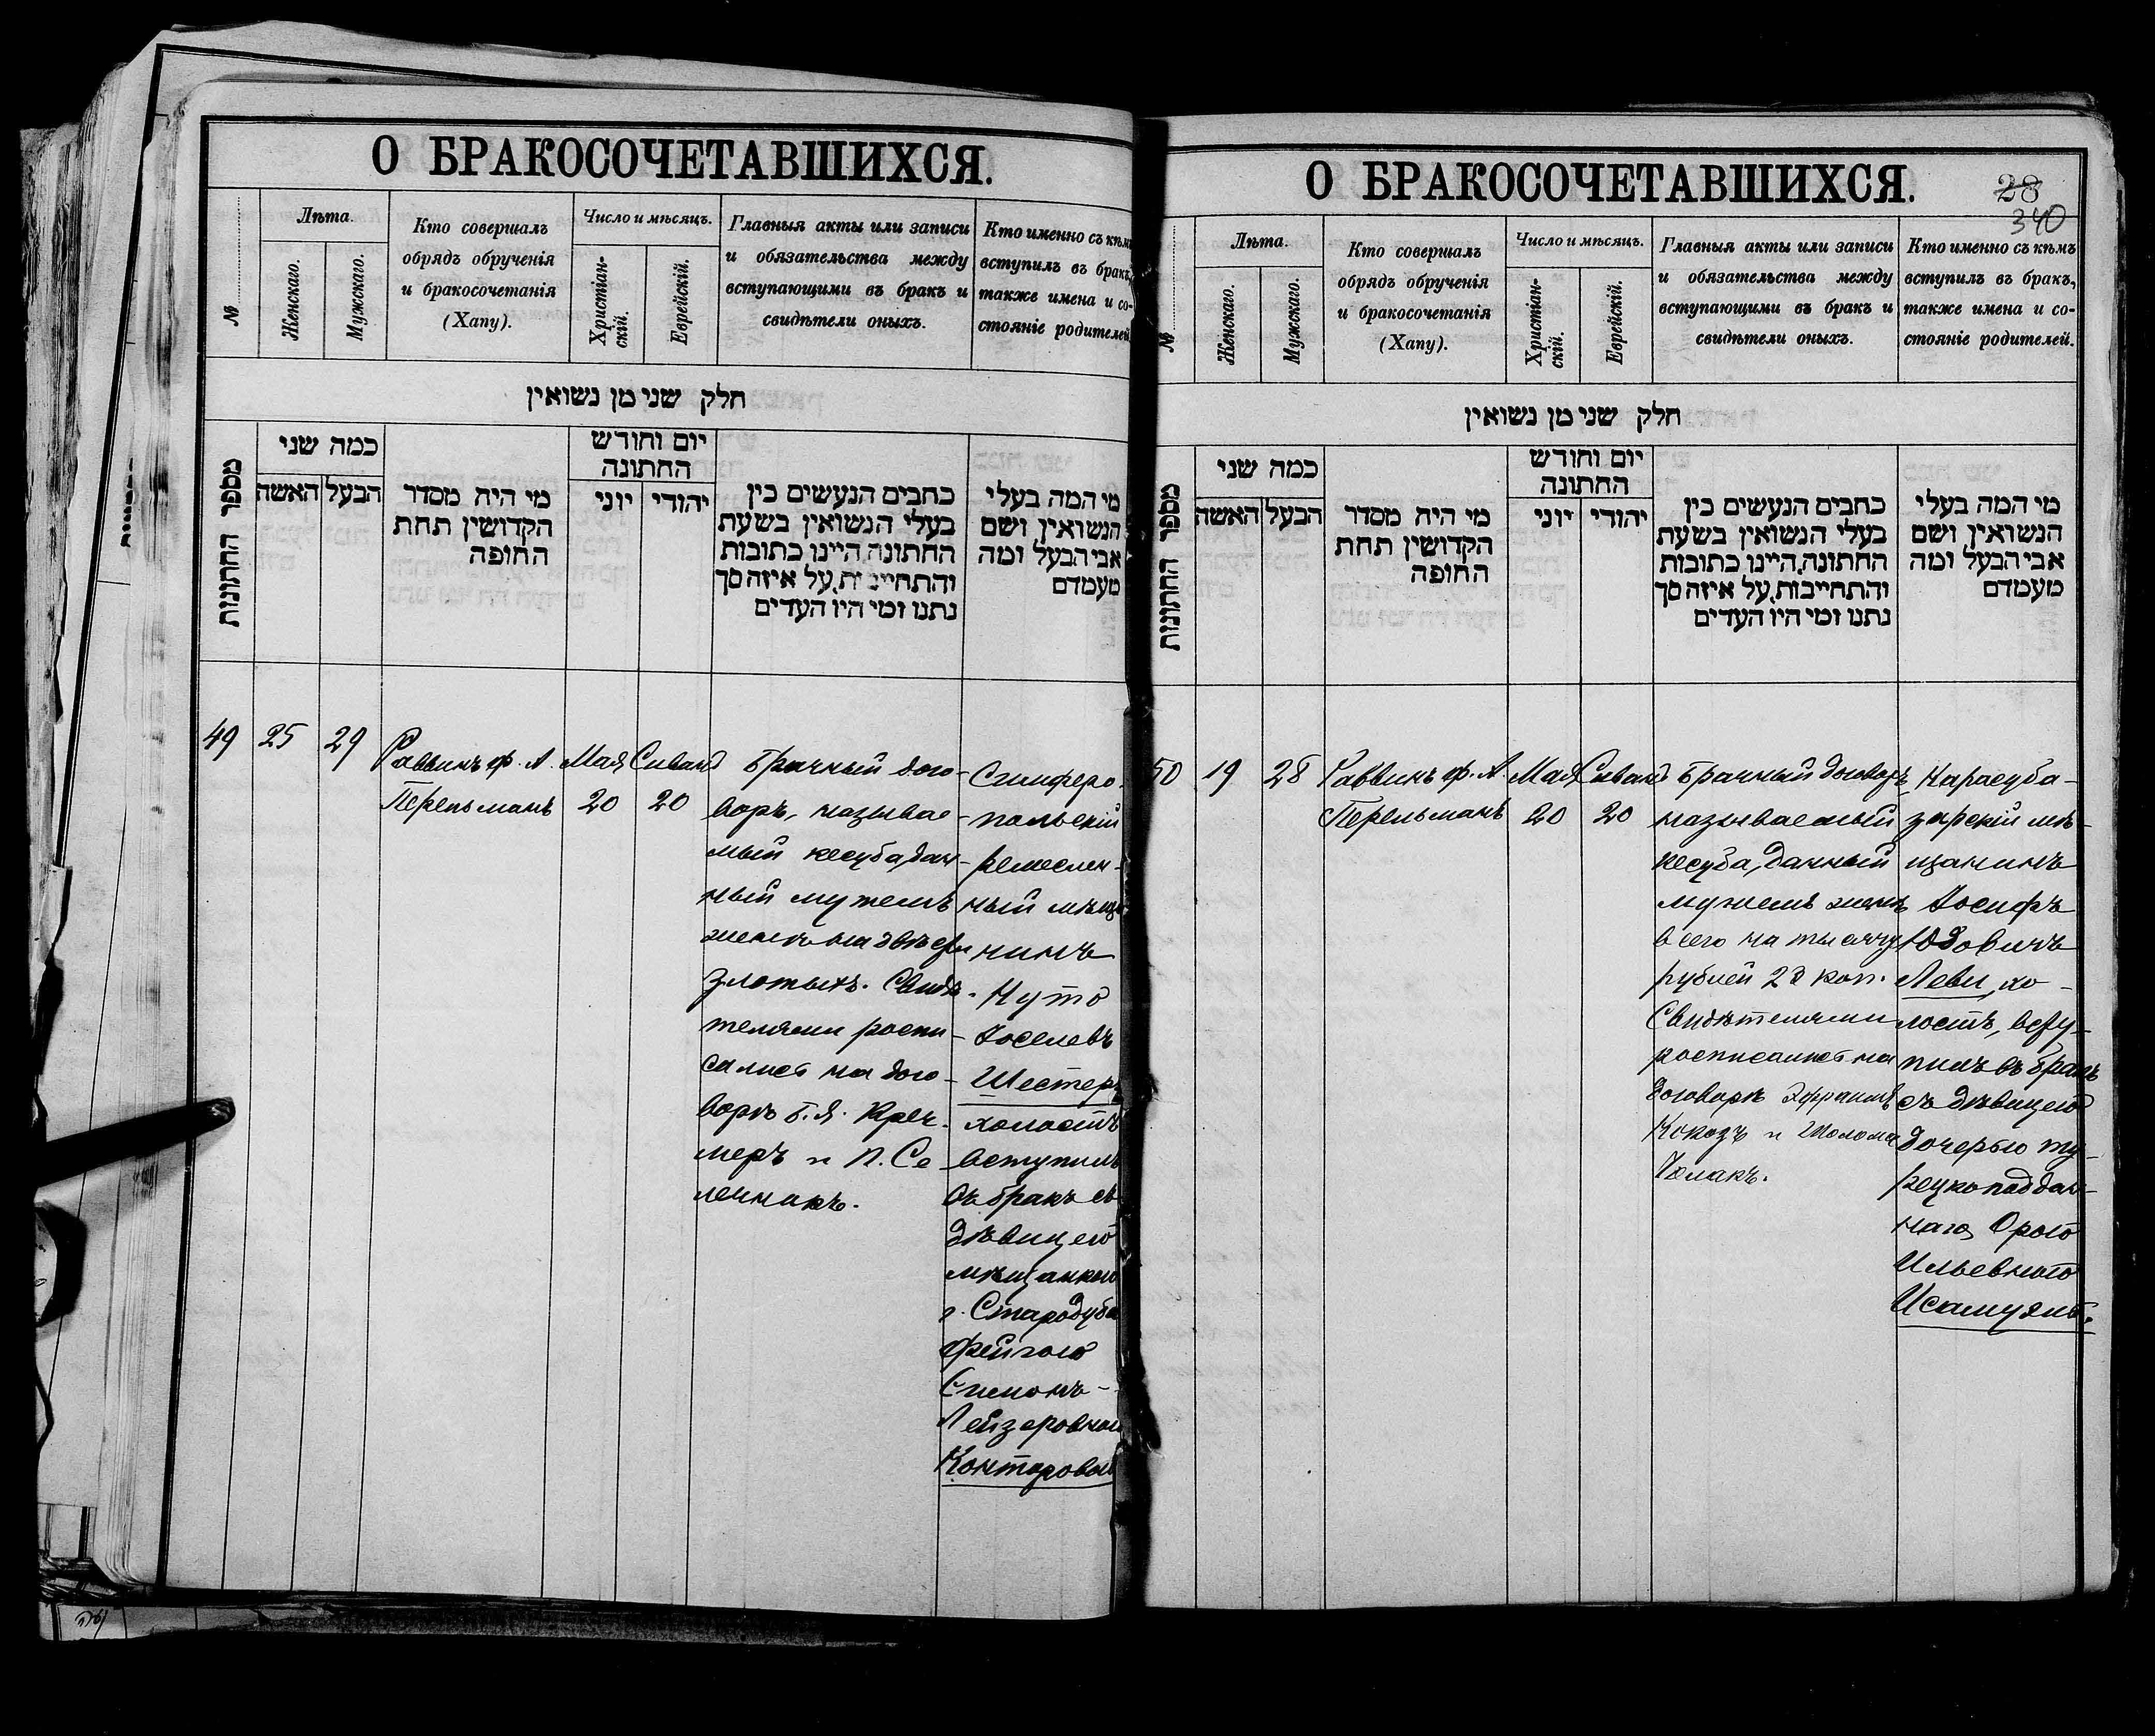 О БРАКОСОЧЕТАВШИХСЯ.
№
Лѣта.
Женскаго.
Мужскаго.
Кто совершалъ
обрядъ обрученія
и бракосочетанія
(Хапу).
Число и мѣсяцъ.
Христіан-
скій.
Еврейскій.
Главныя акты или записи
и обязательства между
вступающими въ бракъ и
свидѣтели оныхъ.
Кто именно съ кѣмъ
вступилъ въ бракъ,
также имена и со-
стояніе родителей
חלק שני מן נשואין
מספר החתונות
כמה שני
האשה
הבעל
מי היה מסדר
הקדושין תחת
החופה
יום וחודש
החתונה
יוני
יהודי
כתבים הנעשים בין
בעלי הנשואין בשעת
החתונה, היינו כתובות
והתחייבות, על איזה סך
נתנו ומי היו העדים
מי המה בעלי
הנשואין ושם
אבי הבעל ומה
מעמדם
49
25
29
Раввинъ ф. А.
Перельманъ
Мая
20
Сиванъ
20
Брачный дого-
воръ, называе-
мый кесуба, дан-
ный мужемъ
женѣ на двѣсти
злотыхъ. Свидѣ-
телями роспи-
сались на дого-
ворѣ Б. Я. Крем-
меръ и П. Се
ленникъ.
Симферо-
польскій
ремеслен-
ный мѣща
нинъ
Нута
Іоселевъ
Шестеръ
холостъ
вступилъ
въ бракъ съ
дѣвицею
мѣщанкою
г. Стародуба
Фейгою
Симонъ-
Лейзеровною
Конторовой
О БРАКОСОЧЕТАВШИХСЯ.
28
340
№
Лѣта.
Женскаго.
Мужскаго.
Кто совершалъ
обрядъ обрученія
и бракосочетанія
(Хапу).
Число и мѣсяцъ.
Христіан-
скій.
Еврейскій.
Главныя акты или записи
и обязательства между
вступающими въ бракъ и
свидѣтели оныхъ.
Кто именно съ кѣмъ
вступилъ въ бракъ,
также имена и со-
стояніе родителей.
חלק שני מן נשואין
מספר החתונות
כמה שני
האשה
הבעל
מי היה מסדר
הקדושין תחת
החופה
יום וחודש
החתונה
יוני
יהודי
כתבים הנעשים בין
בעלי הנשואין בשעת
החתונה, היינו כתובות
והתחייבות, על איזה סך
נתנו ומי היו העדים
מי המה בעלי
הנשואין ושם
אבי הבעל ומה
מעמדם
50
19
28
Раввинъ ф. А.
Перельманъ
Мая
20
Сиванъ
20
Брачный договоръ
называемый
кесуба, данный
мужемъ женѣ
всего на тысячу
рублей 28 коп.
Свидѣтелями
росписались на
договорѣ Эфраимъ
Кокозъ и Шолома
Карасуба-
зарскій мѣ-
щанинъ
Іосифъ
Юдовичъ
Леви, хо-
лостъ, всту-
пилъ въ бракъ
съ дѣвицею
дочерью ту-
рецкоподдан-
наго Орою
Ильевною
Исамуэль.